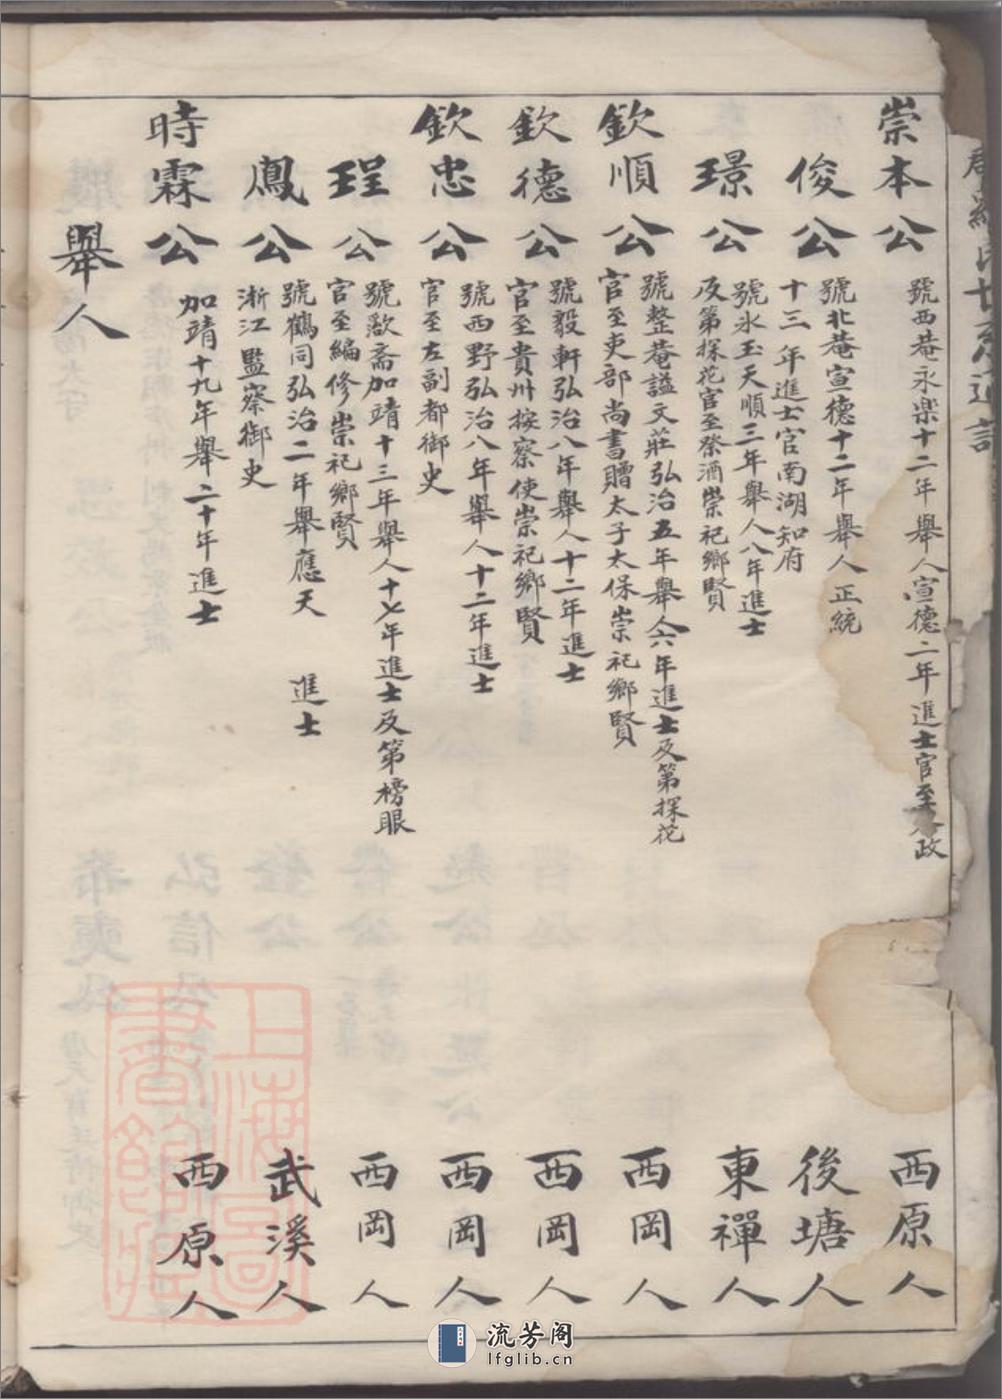 崇本公
號西菴永楽十二年舉人宣德二年進士官至政
西原人
俊公
號北菴宣德十二年舉人正統
十三年進士官南湖知府
後塘人
璟公
號氷玉天順三年舉人八年進士
及第探花官至祭酒崇祀鄉賢
東禪人
欽順公
號整菴謚文莊弘治五年舉人六年進士及第探花
官至吏部尚書贈太子太保崇祀鄉賢
西岡人
欽德公
號毅軒弘治八年舉人十二年進士
官至貴州按察使崇祀鄉賢
西岡人
欽忠公
號西野弘治八年舉人十二年進士
官至左副都御史
西岡人
珵公
號歉斋加靖十三年舉人十七年進士及第榜眼
官至編修崇祀鄉賢
西岡人
鳳公
號鶴同弘治二年舉應天 進士
淅江監察御史
武溪人
時霖公
加靖十九年舉二十年進士
西原人
舉人
上海圖書館藏
流芳阁
lfglib.cn